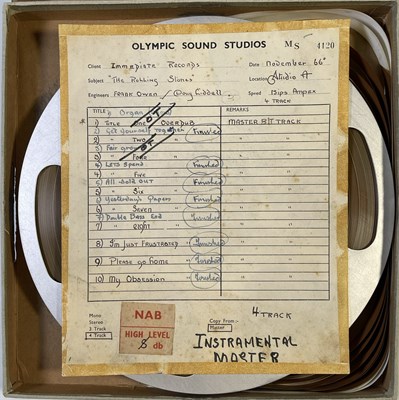 OLYMPIC SOUND STUDIOS MS 4120
Client Immediate Records Date November 66"
Subject "The Rolling Stones" Location Studio A
Engineers Speed 15ips Ampex
4 TRACK
TITLE REMARKS
1) Title One OVERDUB MASTER 8T TRACK
2) Get Yourself Together Finished
" Two "
3) Fair
" Four
4) Lets Spend Finished
" Five "
5) All Sold Out Finished
" Six "
6) Yesterdays Papers Finished
" Seven "
7) Double Bass End Finished
" EIGHT "
8) I'm Just FRUSTRATED " Finished "
9) Please go home " Finished "
10) My Obsession " Finished "
Mono
Stereo
3 Track
4 Track
NAB
HIGH LEVEL
8 db
Copy From:-
Master
4 TRACK
INSTRAMENTAL
MASTER